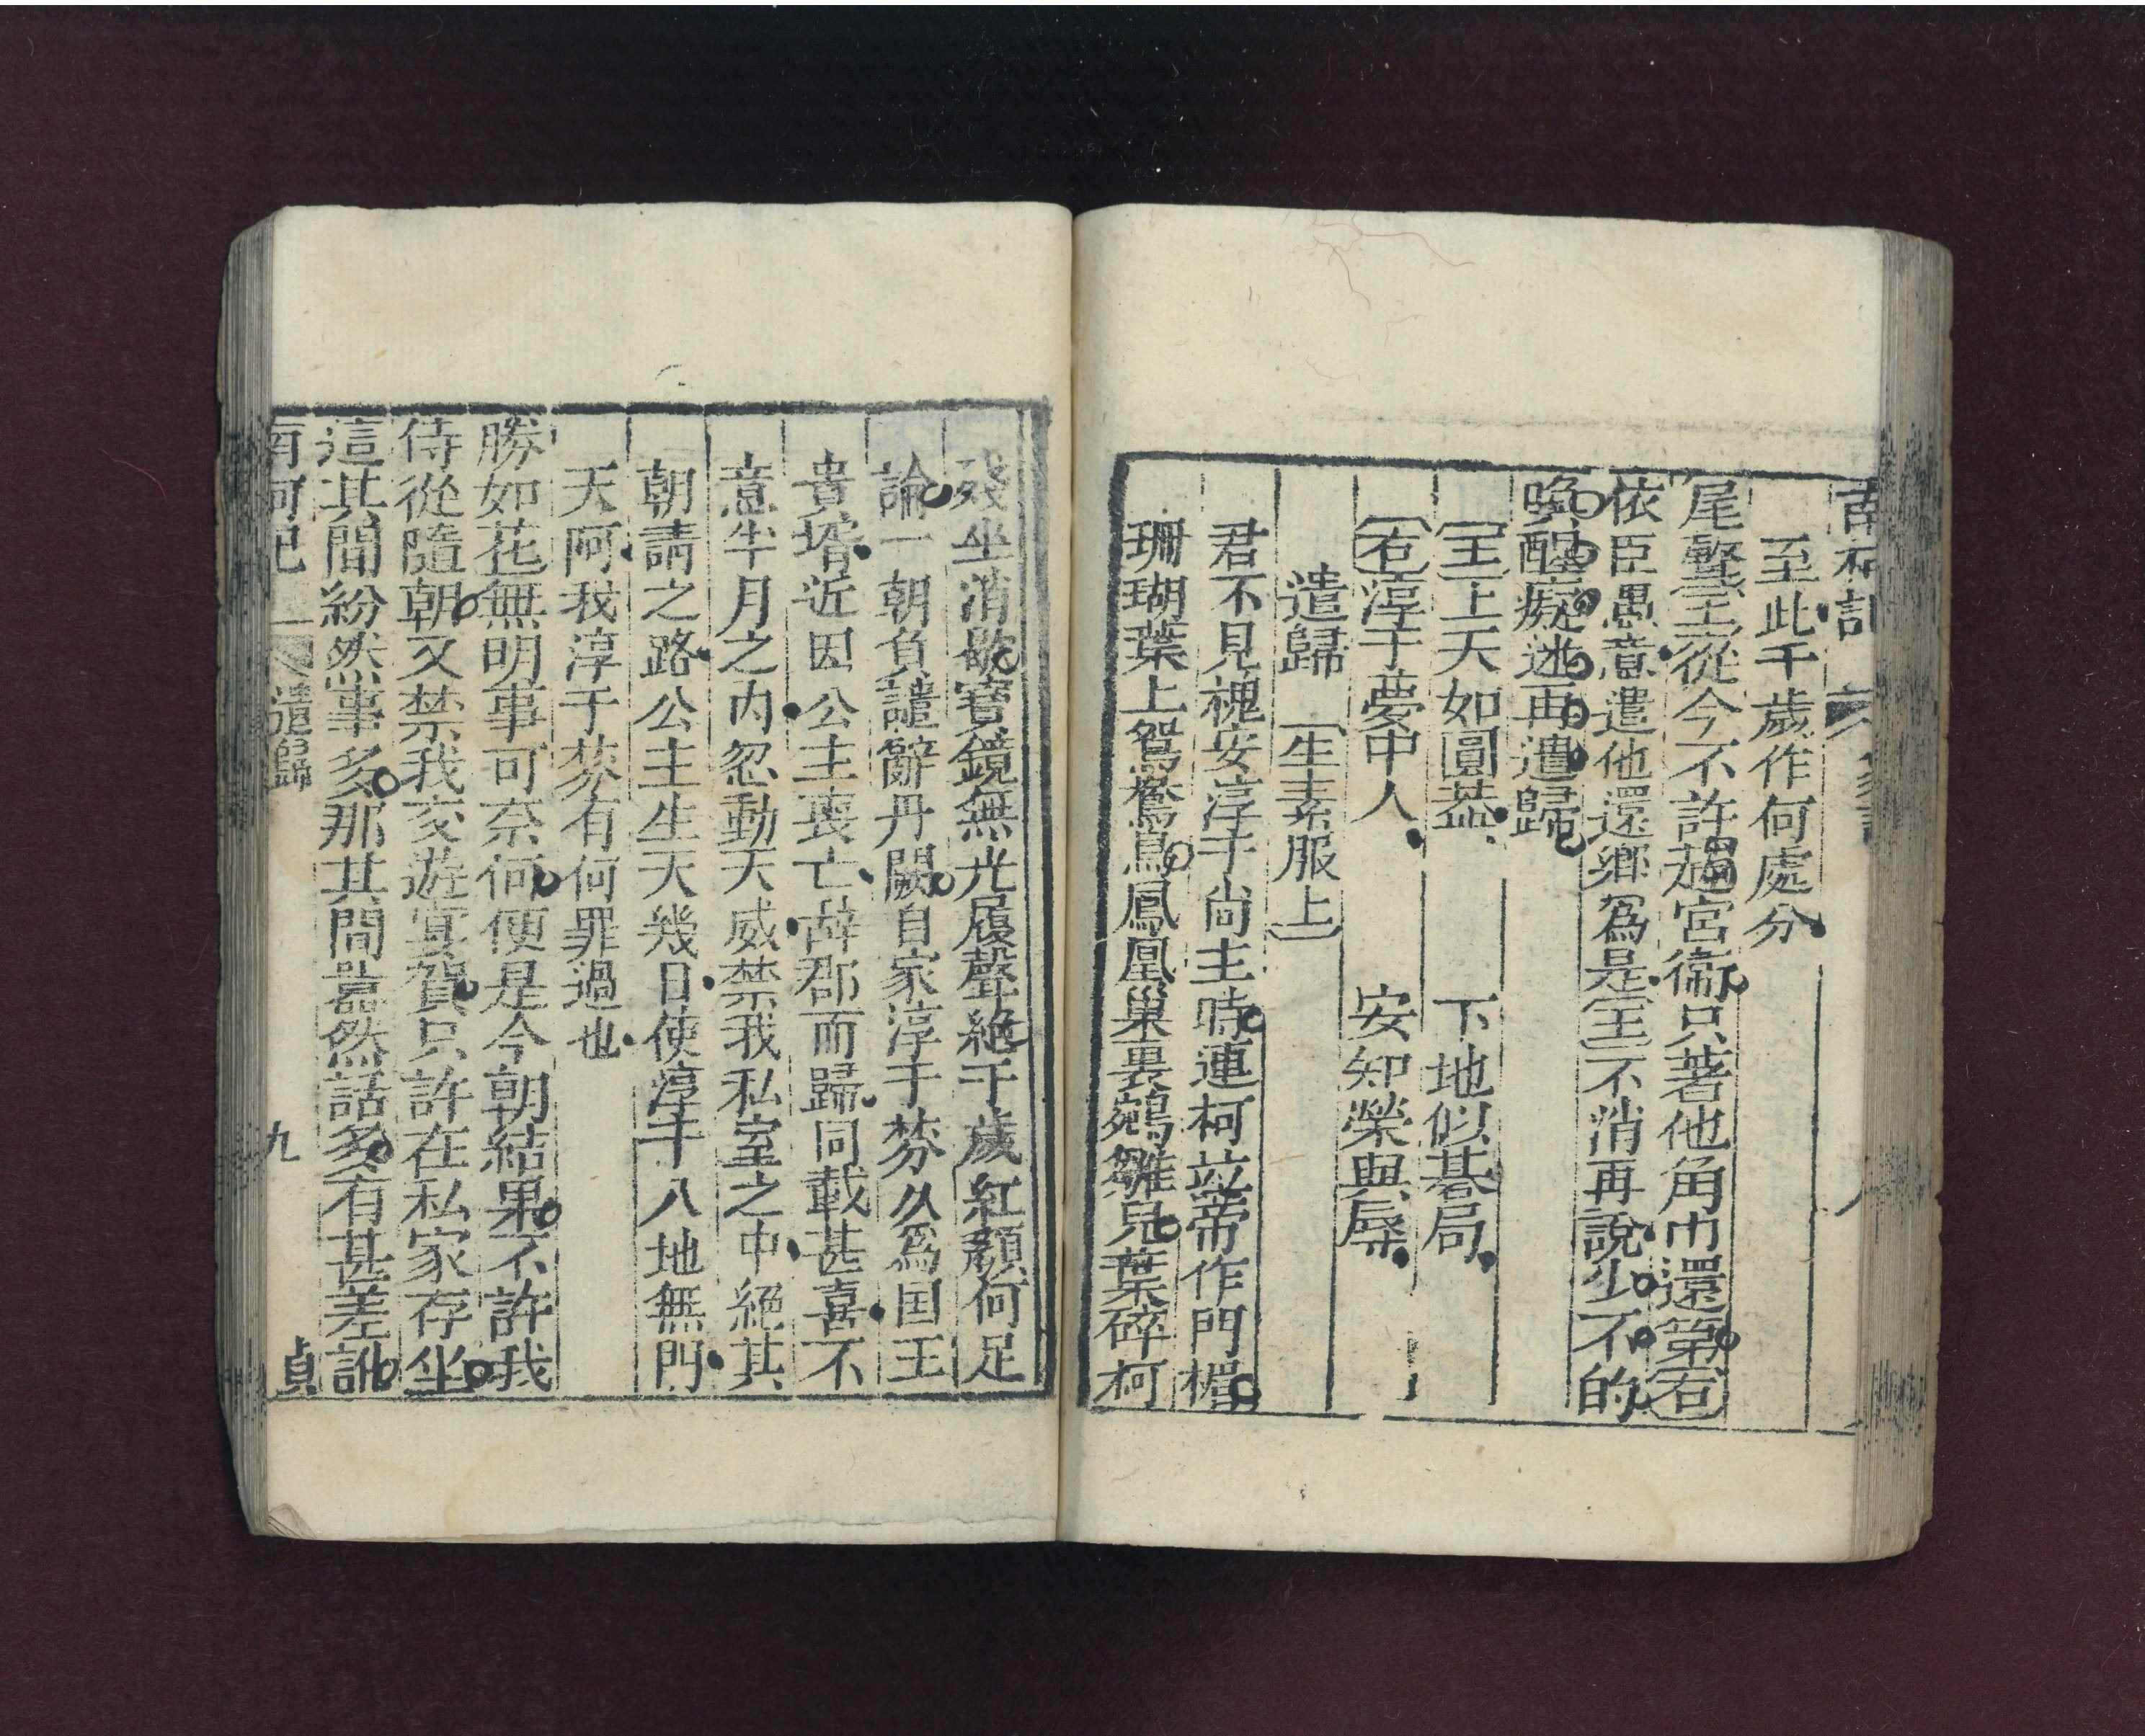 南柯記
至此千歲作何處分
尾聲王從今不許趨宮衛只著他角巾還第右
依臣愚意遣他還鄉為是王不消再說少不的
喚醒癡迷再遣歸
王上天如圓蓋 下地似碁局
右淳于夢中人 安知榮與辱
遣歸 生素服上
君不見槐安淳于尚主時連柯並蒂作門楣
珊瑚葉上鴛鴦鳥鳳凰巢裏鵷雛兒葉碎柯
殘坐消歇寶鏡無光履聲絶千歲紅顏何足
論一朝負譴辭丹闕自家淳于棼久為国王
貴壻近因公主喪亡辞郡而歸同載甚喜不
意半月之內忽動天威禁我私室之中絕其
朝請之路公主生天幾日使淳于入地無門
天阿我淳于棼有何罪過也
勝如花無明事可奈何便是今朝結果不許我
侍從隨朝又禁我交遊宴賀只許在私家存坐
這其間紛然事多那其問嚣然話多有甚差訛
南柯記 遣歸 九 貞